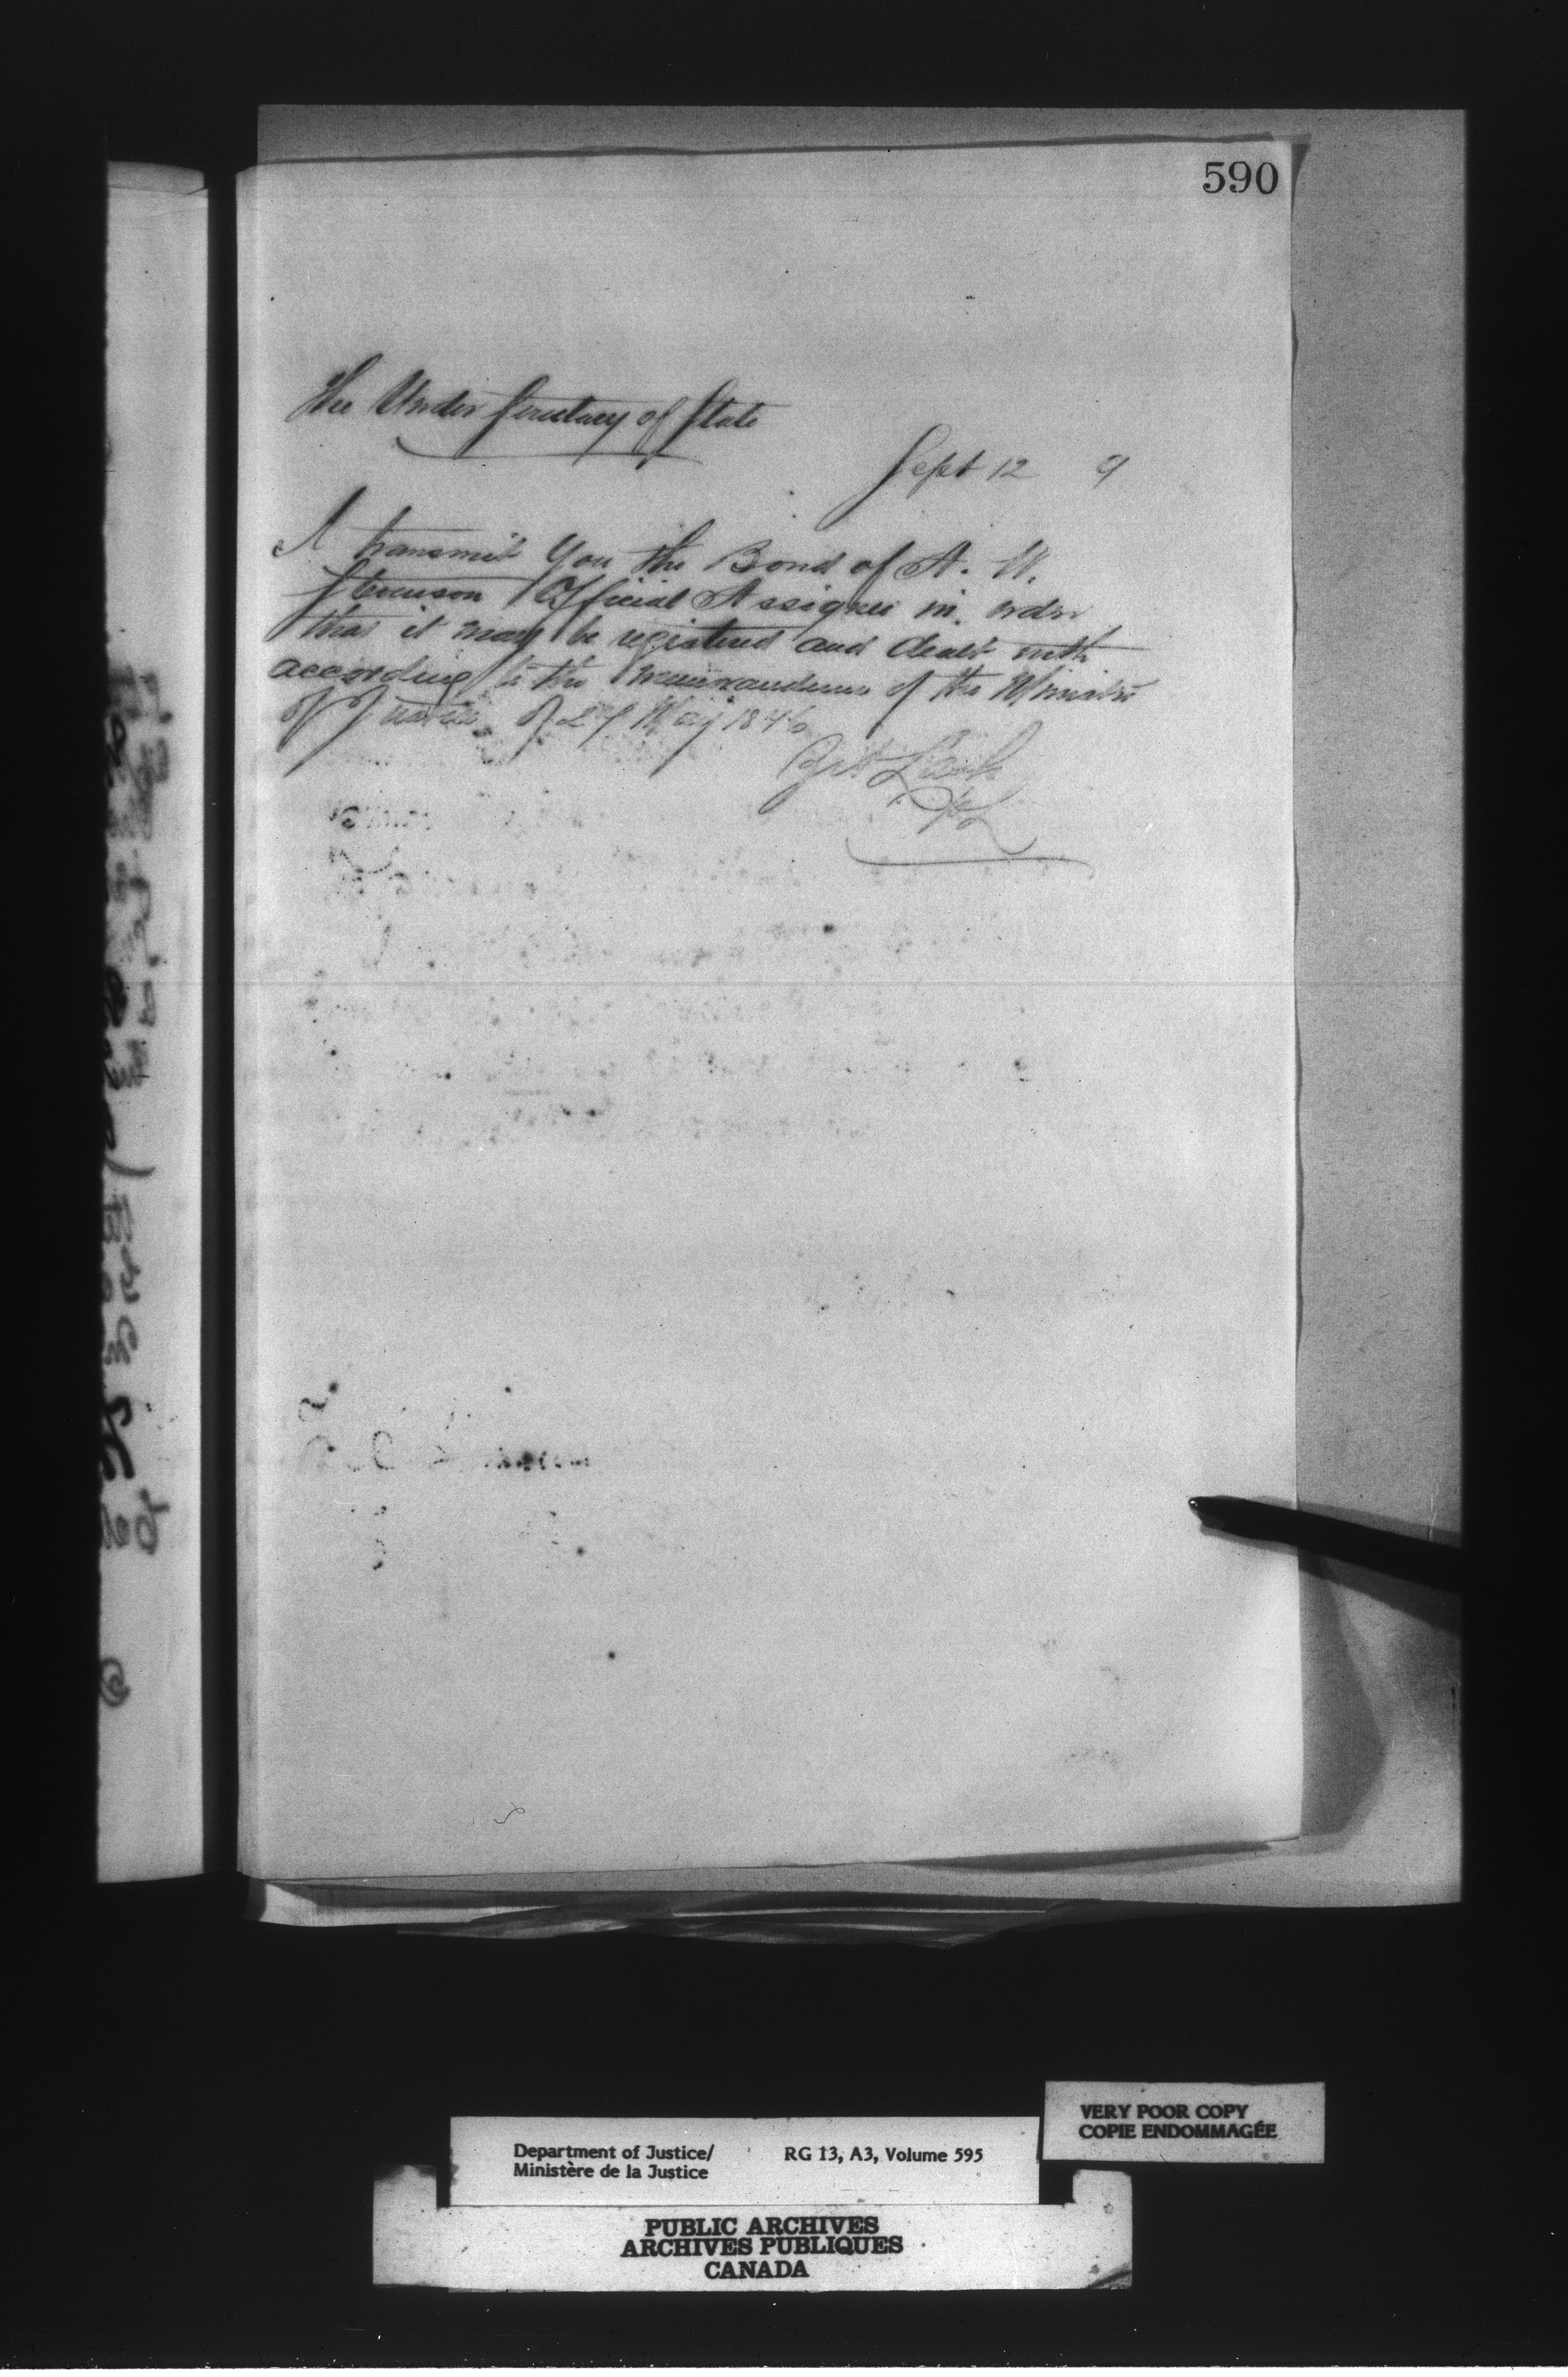 590
The Under Secretary of State
Sept 12 9
I transmit you the Bond of A. W.
Stevenson Official Assignee in order
that it may be registered and dealt with
according to the memorandum of the Minister
of Justice of 29 May 1876
Department of Justice/ RG 13, A3, Volume 595
Ministère de la Justice
VERY POOR COPY
COPIE ENDOMMAGÉE
PUBLIC ARCHIVES
ARCHIVES PUBLIQUES
CANADA